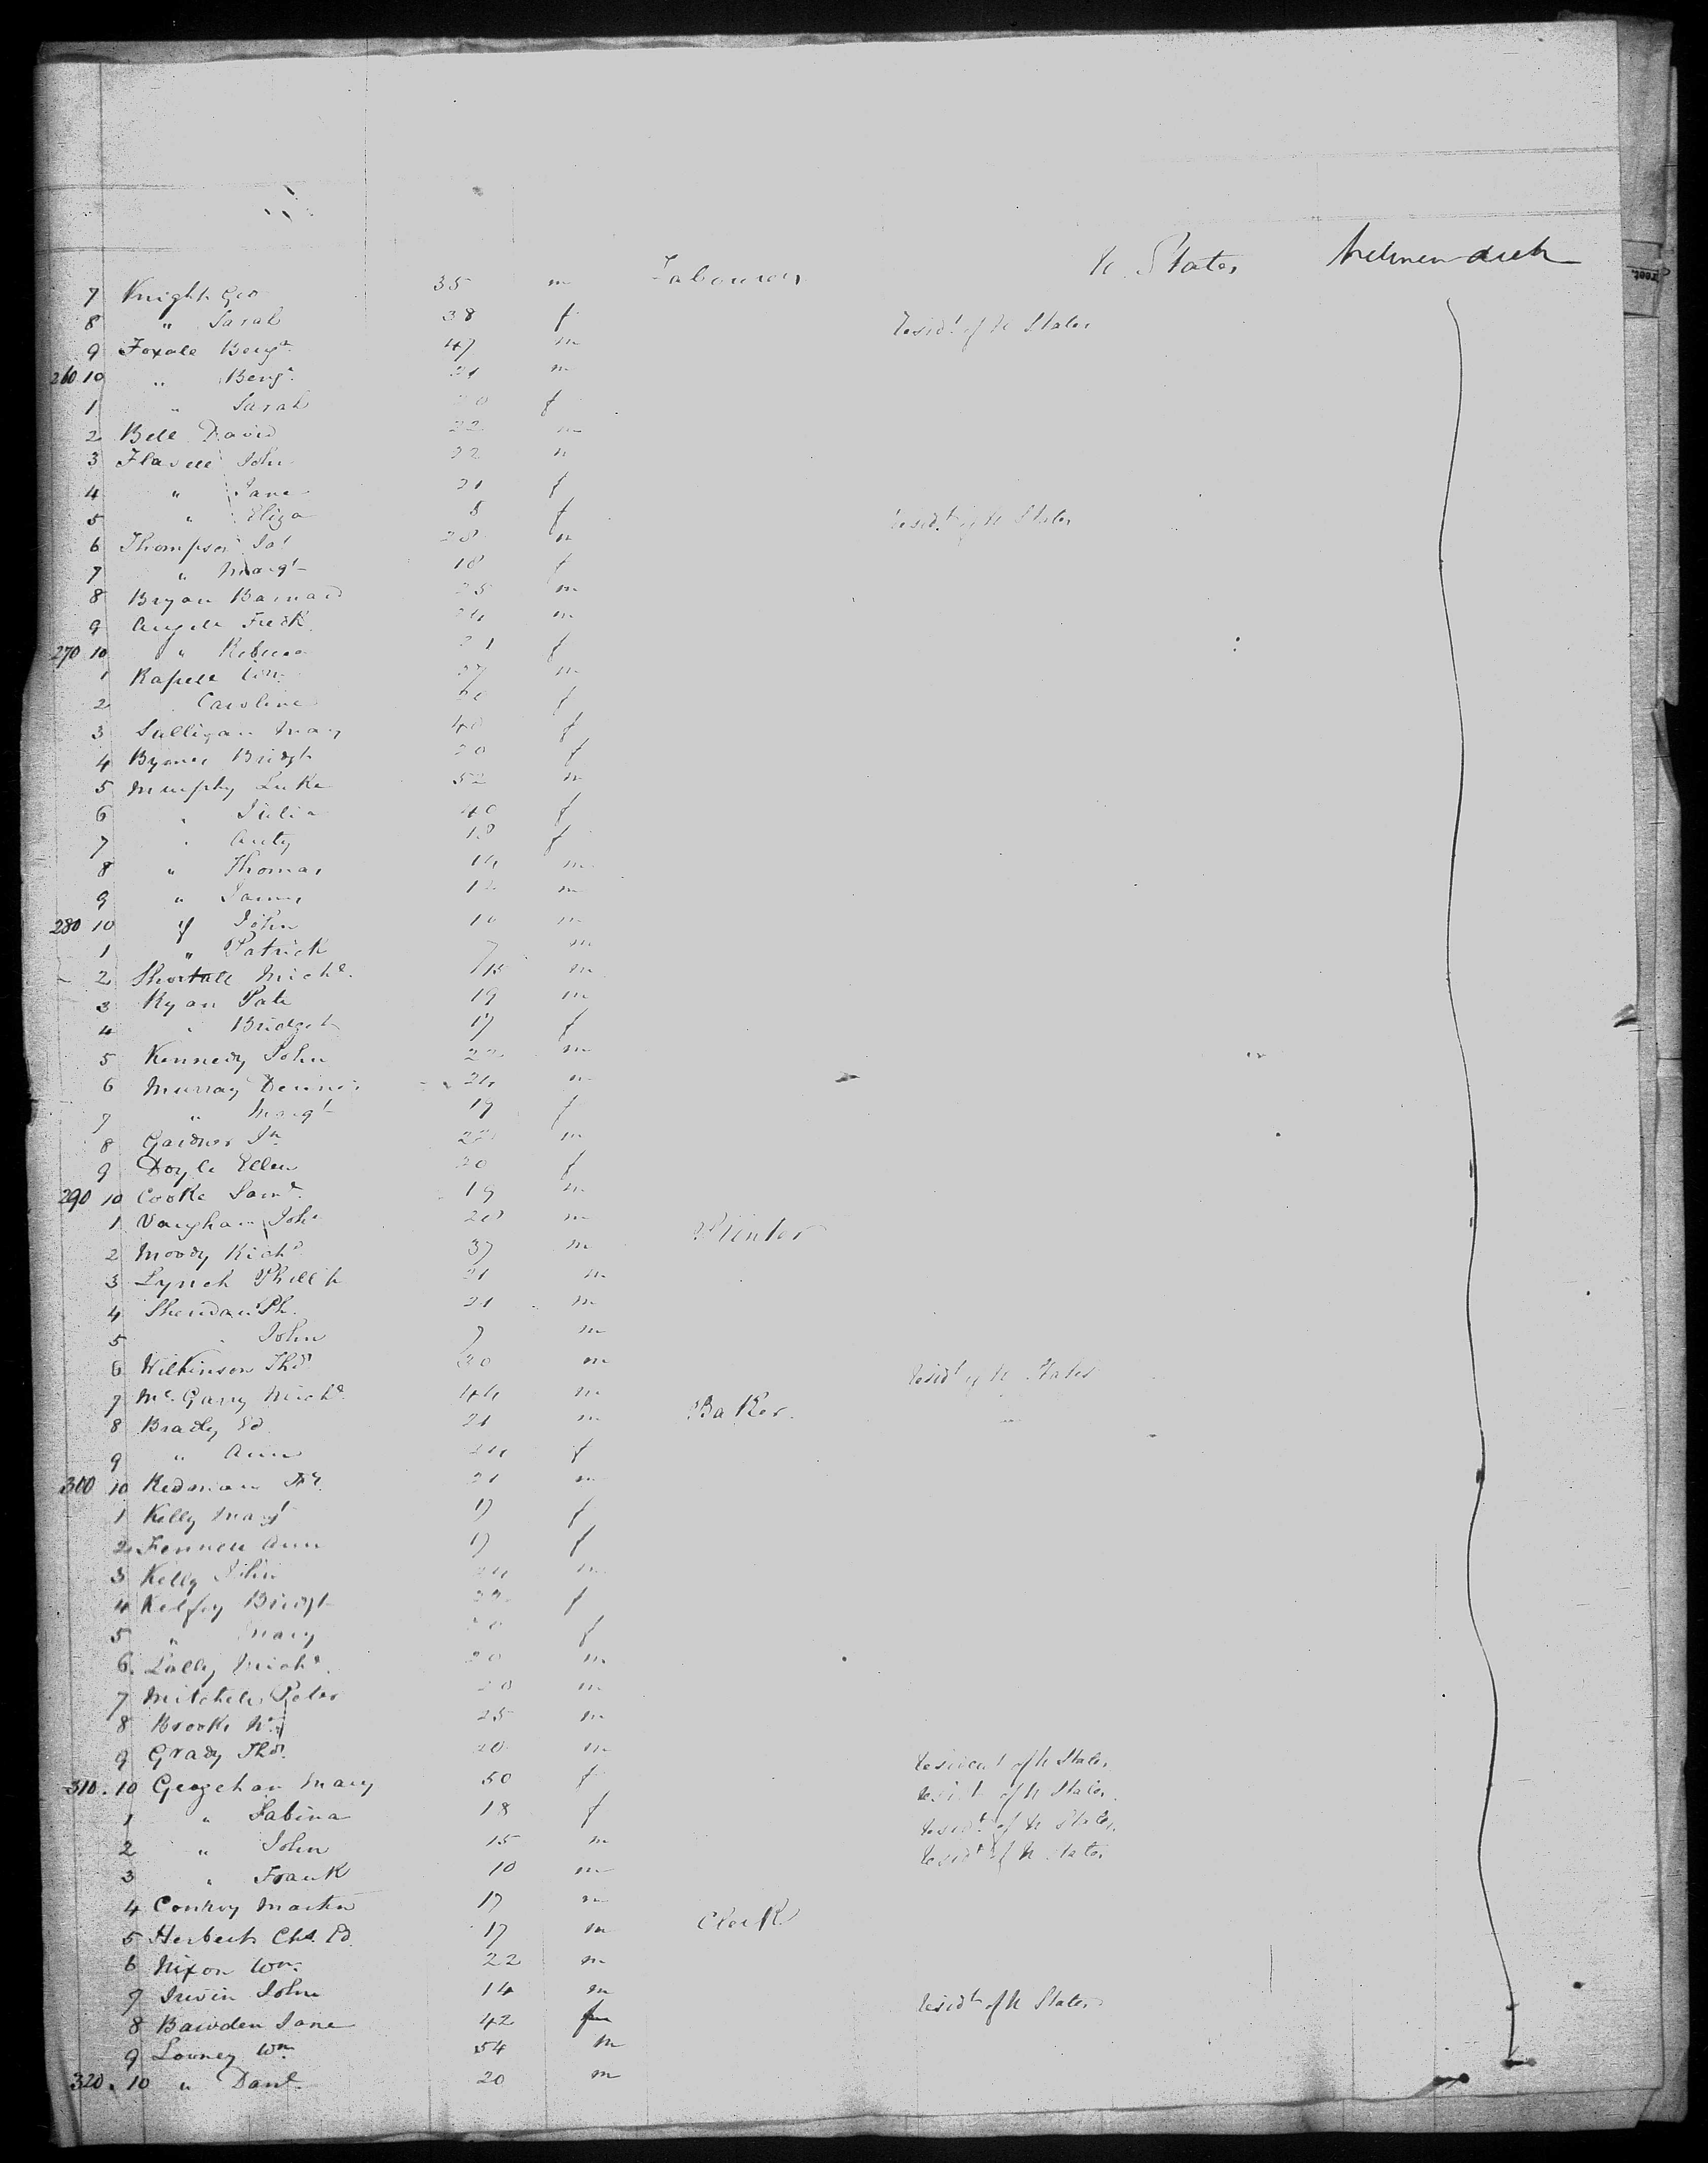 7 Knight Geo 35 m Labourer U. States
8 " Sarah 38 f Resid.t of U States
9 Foxall Benj.n 47 m
260 10 " Benj.n 21 m
1 " Sarah 20 f
2 Bell David 22 m
3 Flavell John 22 m
4 " Jane 21 f
5 " Eliza 5 f Resid.t of U States
6 Thompson Jas 20 m
7 " Margt 18 f
8 Bryan Barnard 25 m
9 Angell Fredk 24 m
270 10 " Rebecca 21 f
1 Wm 27 m
2 Caroline f
3 Sullivan Mary 40 f
4 Byrnes Bridgt 20 f
5 Murphy Luke 52 m
6 " Julia 40 f
7 " Anty 18 f
8 " Thomas 14 m
9 " James 12 m
280 10 " John 10 m
1 " Patrick 7 m
2 Shortall Michl. 15 m
3 Ryan Patk 19 m
4 " Bridget 17 f
5 Kennedy John 22 m
6 Murray Dennis 24 m
7 " Margt 19 f
8 Gardner Jn 22 m
9 Doyle Ellen 20 f
290 10 Cooke Saml. 19 m
1 Vaughan John 20 m
2 Moody Richd 37 m Printer
3 Lynch Phillip 21 m
4 Sheridan Ph. 21 m
5 " John 7 m
6 Wilkinson Thos 30 m
7 McGarry Michl. 44 m Resid.t of U States
8 Bradly Ed 21 m Baker
9 " Ann 24 f
300 10 Redman 21 m
1 Kelly Margt 17 f
2 Fennell Ann 17 f
3 Kelly John 24 m
4 Bridgt 22 f
5 " Mary 20 f
6 Lally Michl. 20 m
7 Mitchell Peter 20 m
8 Brooke 25 m
9 Grady Thos. 20 m
310. 10 Geogehan Mary 50 f Resident of U States
1 " Sabina 18 f Resid.t of U States
2 " John 15 m Resid.t of U States
3 " Frank 10 m Resid.t of U States
4 Conroy Martin 17 m
5 Herbert Chs. Ed. 17 m Clerk
6 Nixon Wm. 22 m
7 Irwin John 14 m
8 Bawden Jane 42 f Resid.t of U States
9 Looney Wm 54 m
320. 10 " Danl. 20 m